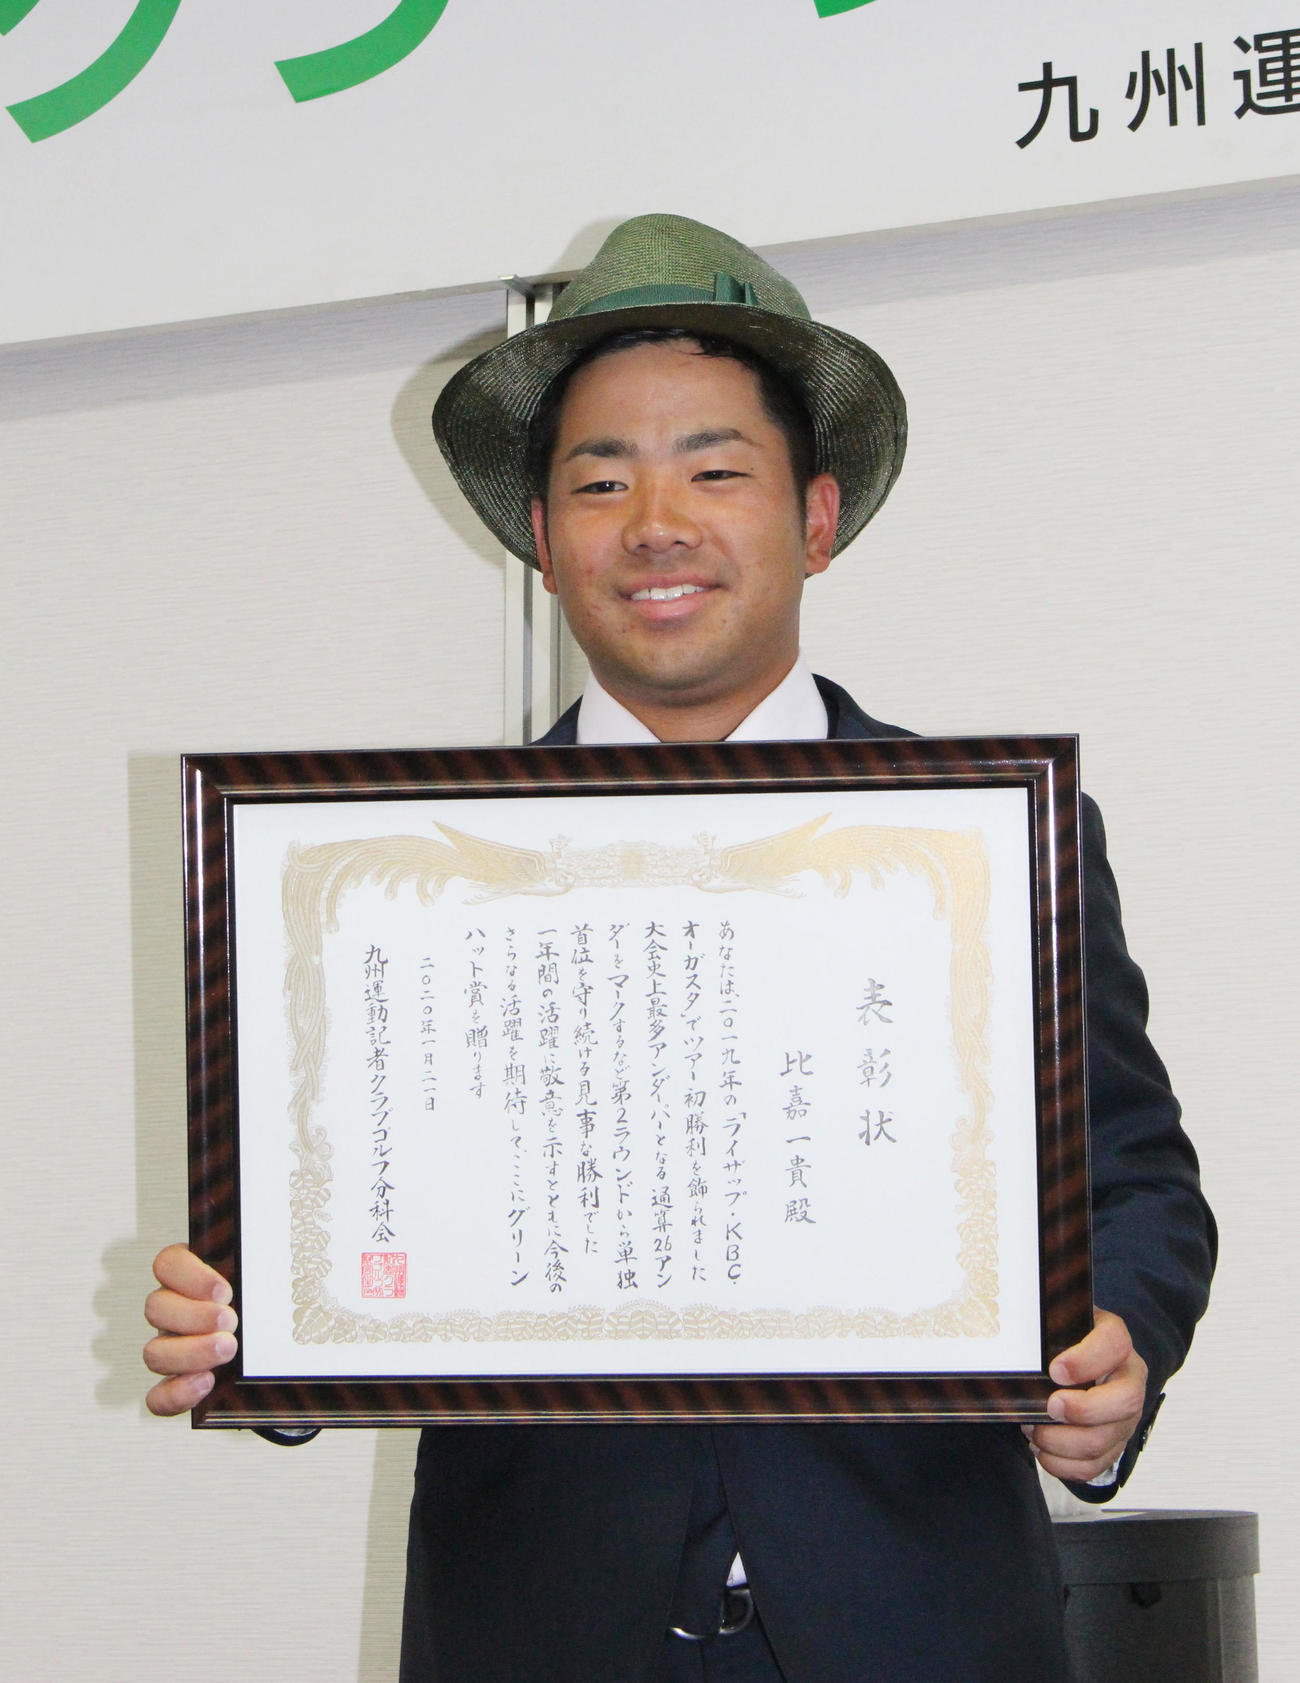 九州運
表彰状
比嘉一貴殿
あなたは、二〇一九年の「ライザップ・KBC・
オーガスタ」でツアー初勝利を飾られました
大会史上最多アンダーパーとなる通算26アン
ダーをマークするなど第2ラウンドから単独
首位を守り続ける見事な勝利でした
一年間の活躍に敬意を示すとともに今後の
さらなる活躍を期待して、ここにグリーン
ハット賞を贈ります
二〇二〇年一月二一日
九州運動記者クラブゴルフ分科会